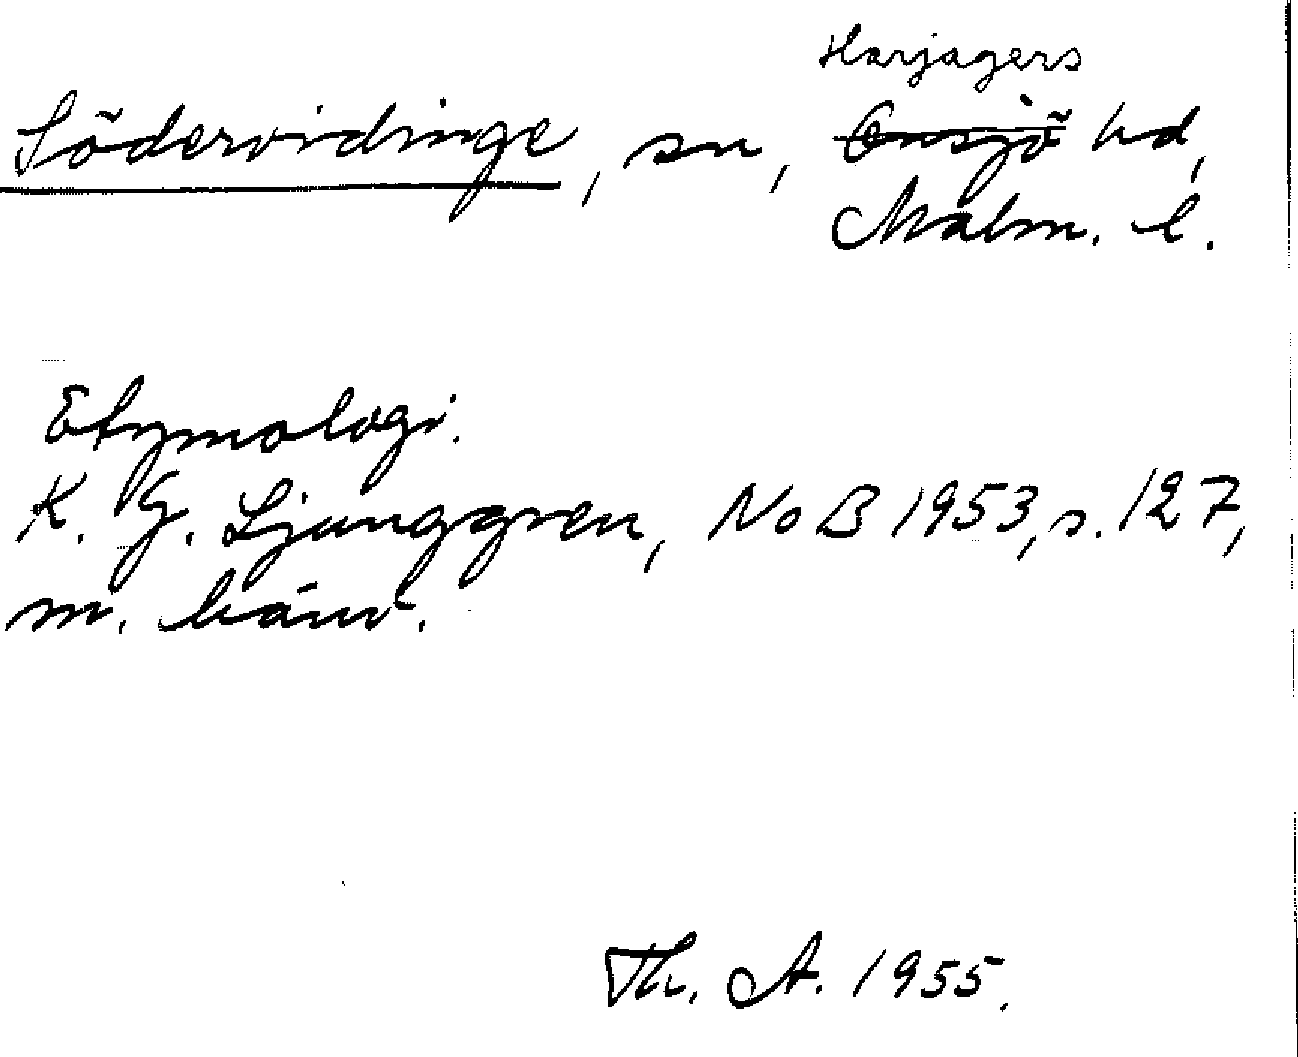 Harjagers
Södervidinge, sn, Onsjö hd,
Malm. l.
Etymologi.
K. G. Ljunggren, NoB 1953, s. 127,
m. hänv.
Th. A. 1955.